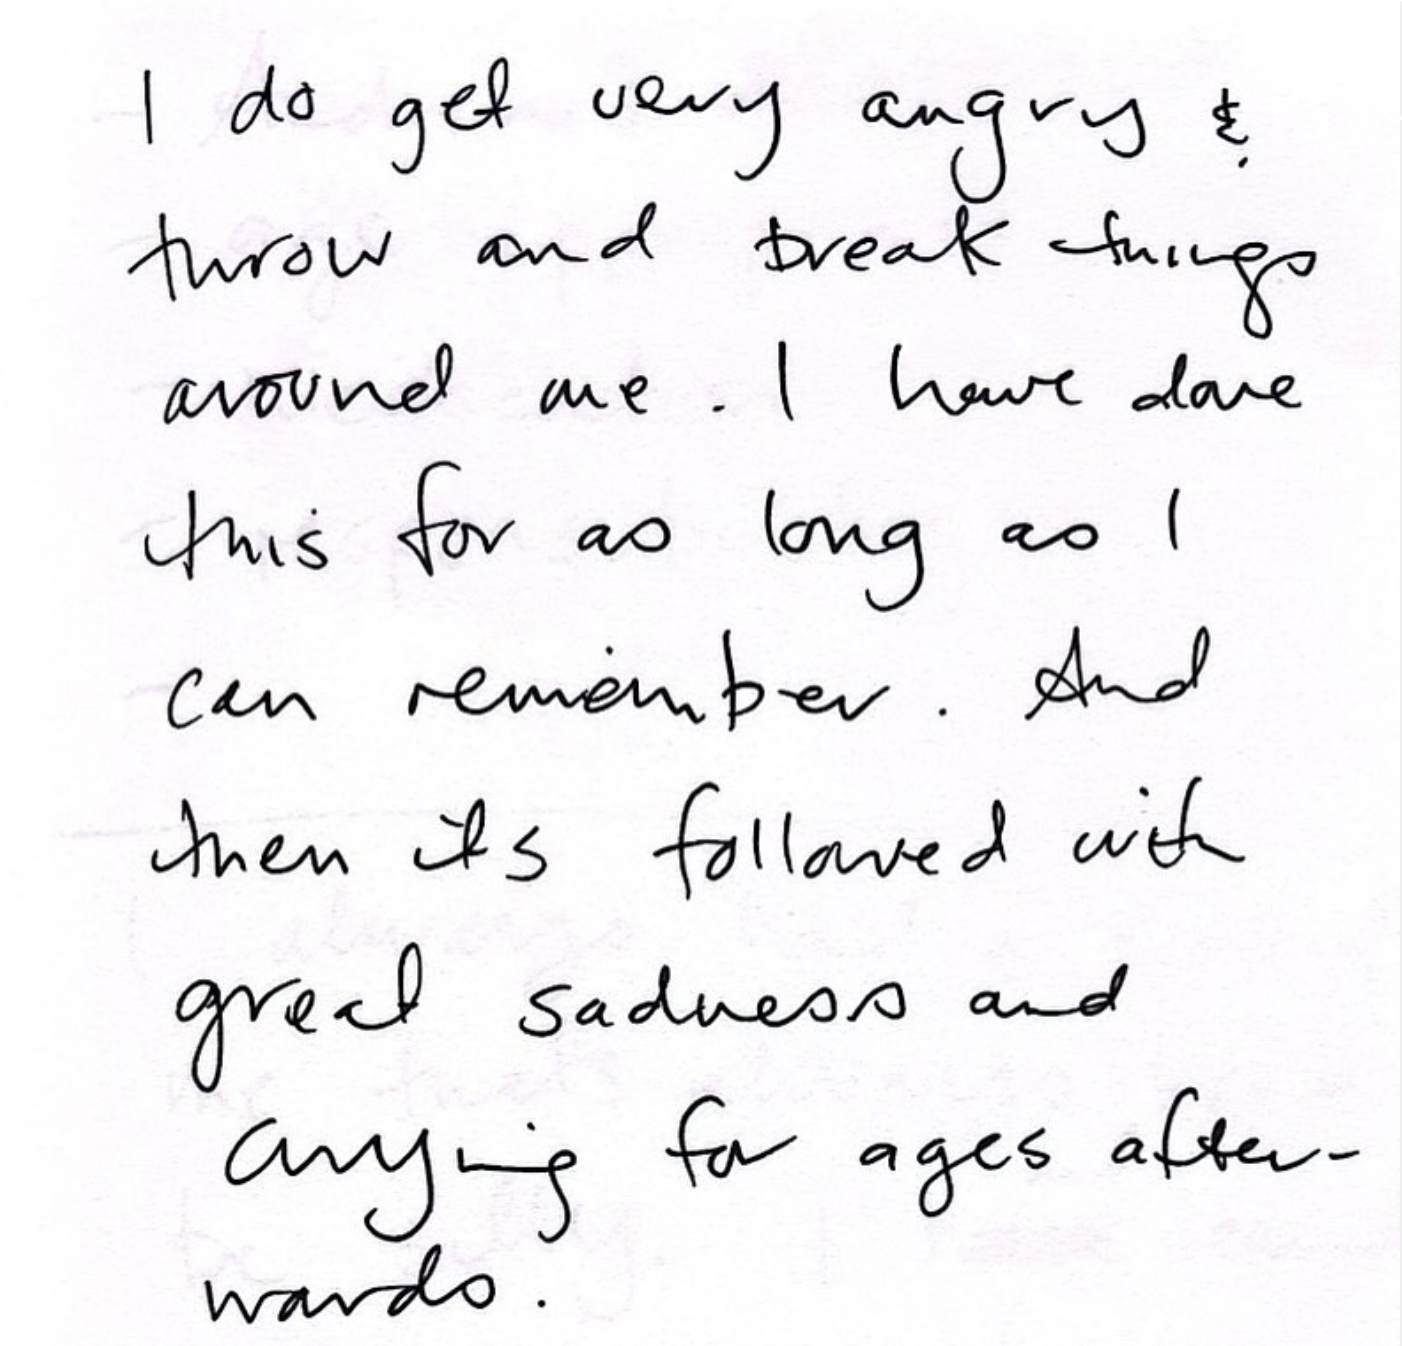 I do get very angry &
throw and break things
around me. I have done
this for as long as I
can remember. And
then its followed with
great sadness and
crying for ages after-
wards.